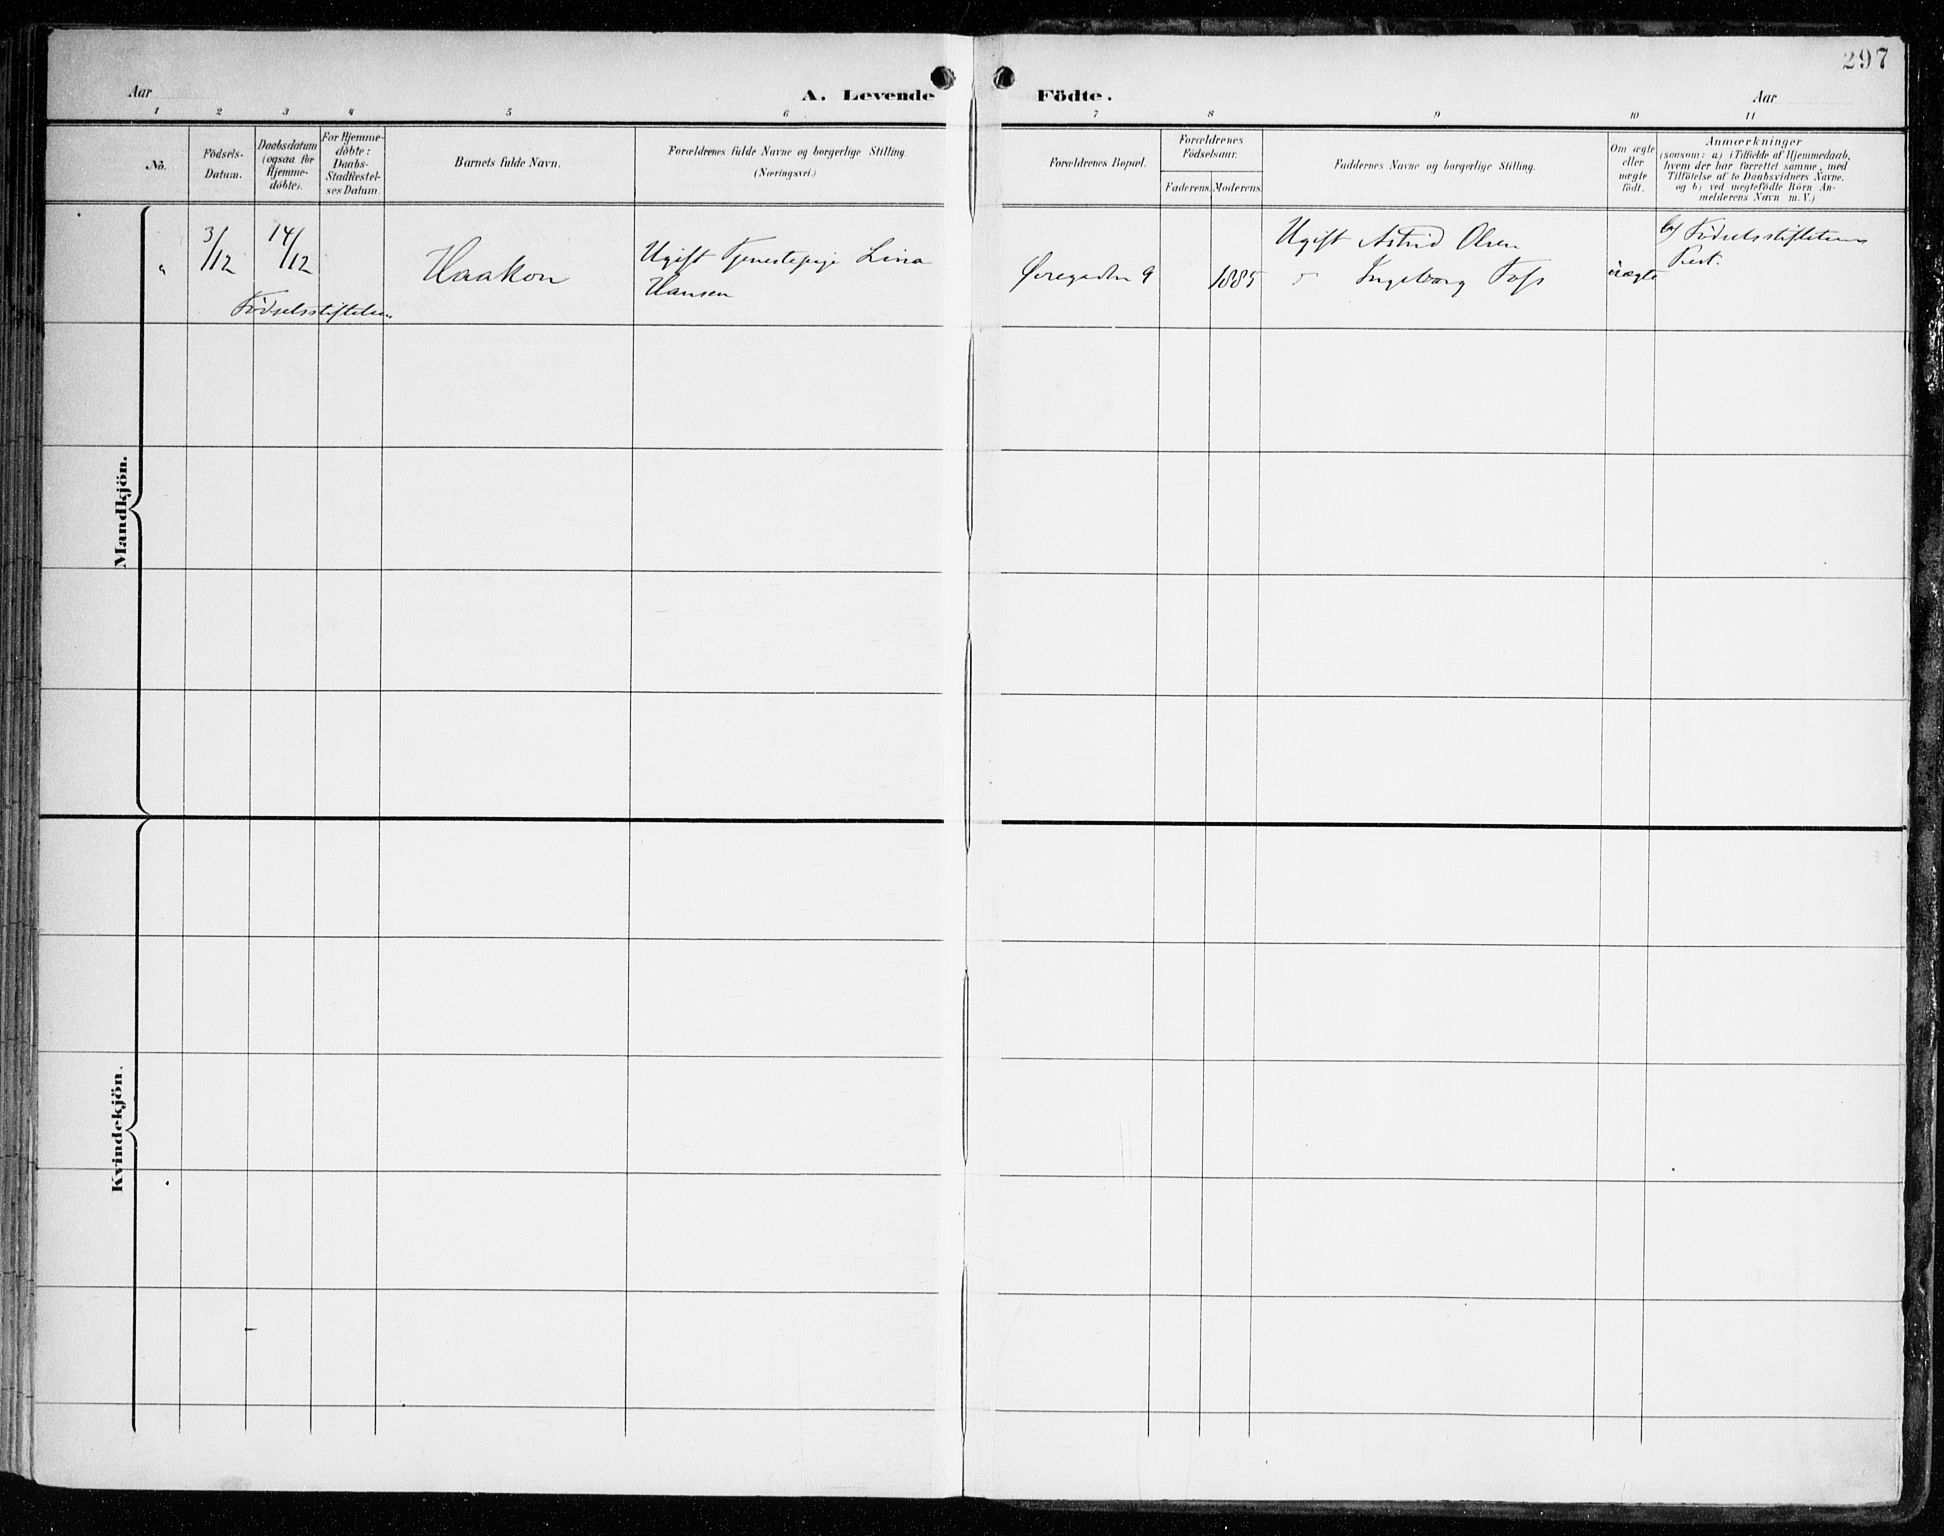 297
Aar
A. Levende Födte.
Aar
1 2 3 4 5 6 7 8 9 10 11
Nö.
Födsels-
Datum.
Daabsdatum
(ogsaa for
Hjemme-
döbte).
For Hjemme-
döbte:
Daabs-
Stadfestel-
ses Datum.
Barnets fulde Navn.
Forældrenes fulde Navne og borgerlige Stilling.
(Næringsvei.)
Forældrenes Bopæl.
Forældrenes
Födselsaar.
Faderens. Moderens.
Faddernes Navne og borgerlige Stilling.
Om ægte
eller
uægte
födt.
Anmærkninger
(saasom: a) i Tilfælde af Hjemmedaab,
hvem der har forrettet samme, med
Tilföielse af to Daabsvidners Navne.
og b) ved uægtefödte Börn An-
melderens Navn m. V.)
Mandkjön.
"
3/12
14/12
Födselsstiftelsen
Haakon
Ugift Tjenestepige Lina
Hansen
Øvregaden 9
1885
Ugift Astrid Olsen
" Ingeborg Foss
uægte
b) Födselsstiftelsens
Kvindekjön.